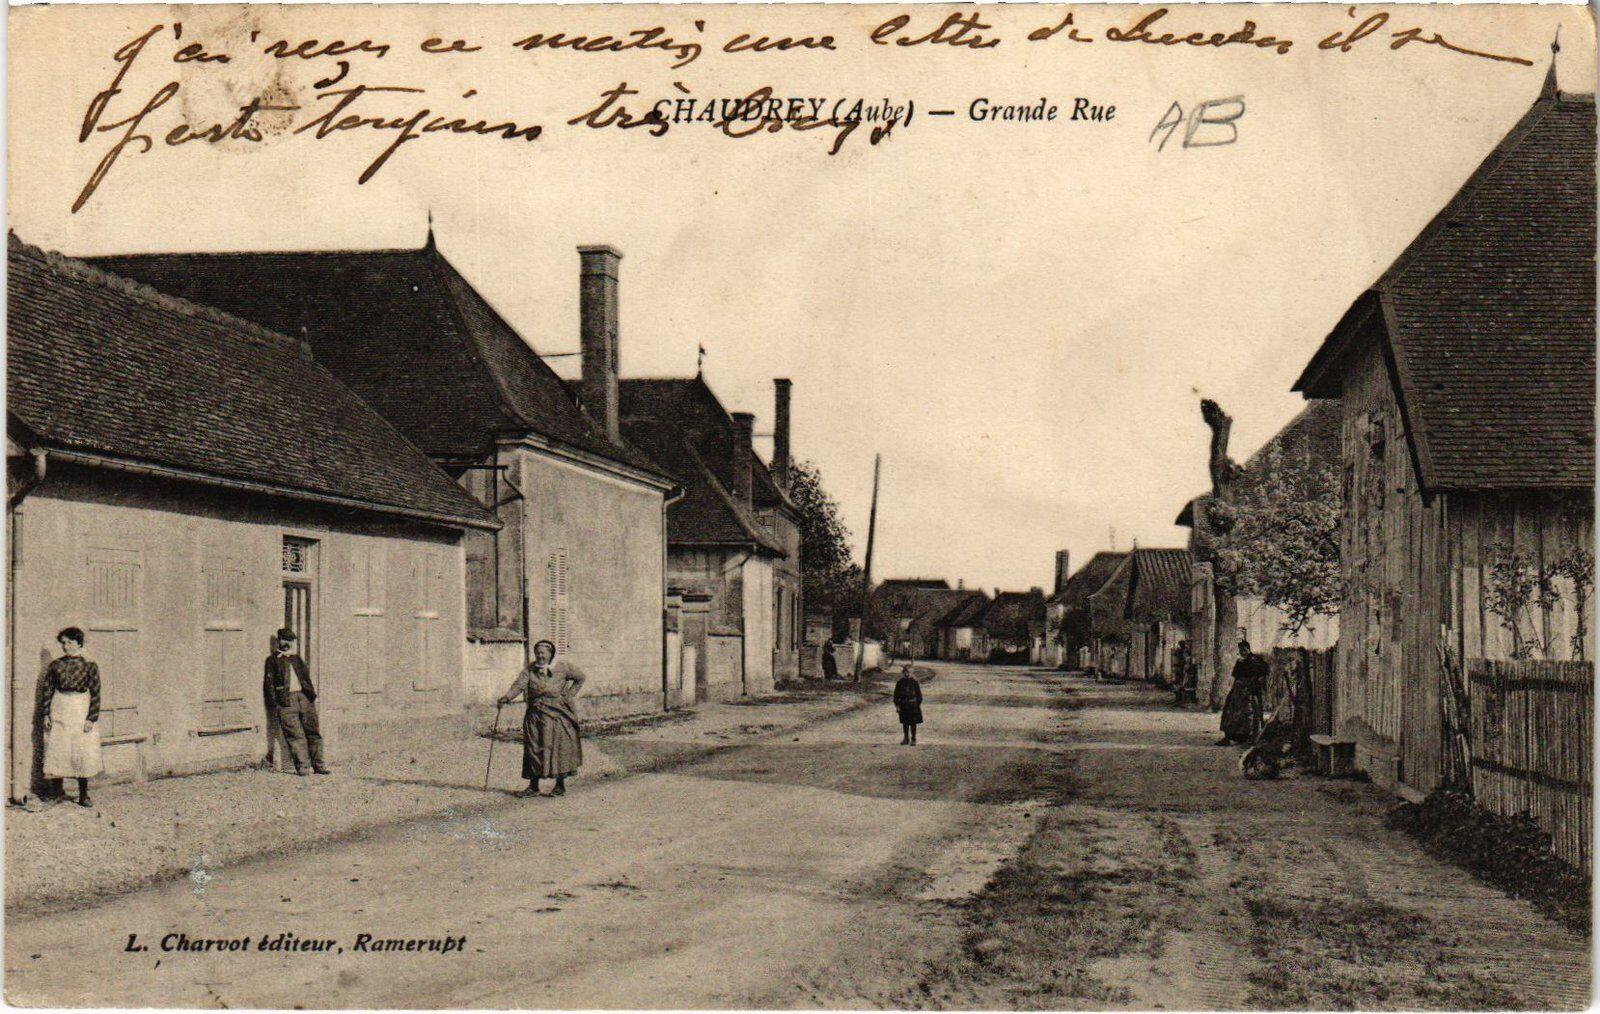 J'ai reçu ce matin une lettre de Lucien il se
porte toujours très bien.
CHAUDREY (Aube) — Grande Rue
AB
L. Charvot éditeur, Ramerupt